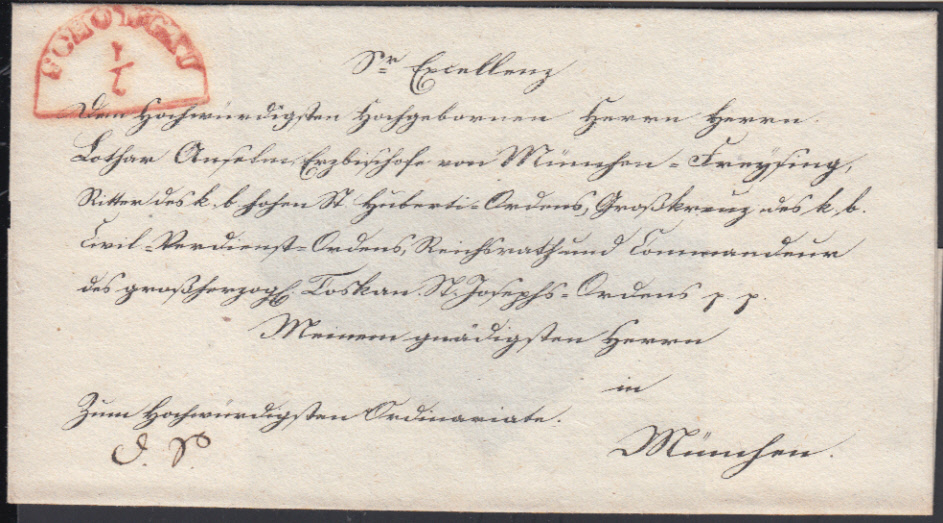 SCHONGAU
1
Sr Excellenz
Den Hochwürdigsten Hochgebornen Herrn Herrn.
Lothar Anselm, Erzbischofe von München-Freysing,
Ritter des k. b. hohen St Huberti-Ordens, Großkreuz des k. b.
Civil-Verdienst-Ordens, Reichsrath und Commandeur
des großherzogl. Toskan. St. Josephs-Ordens p. p.
Meinem gnädigsten Herrn
in
Zum Hochwürdigsten Ordinariate.
München.